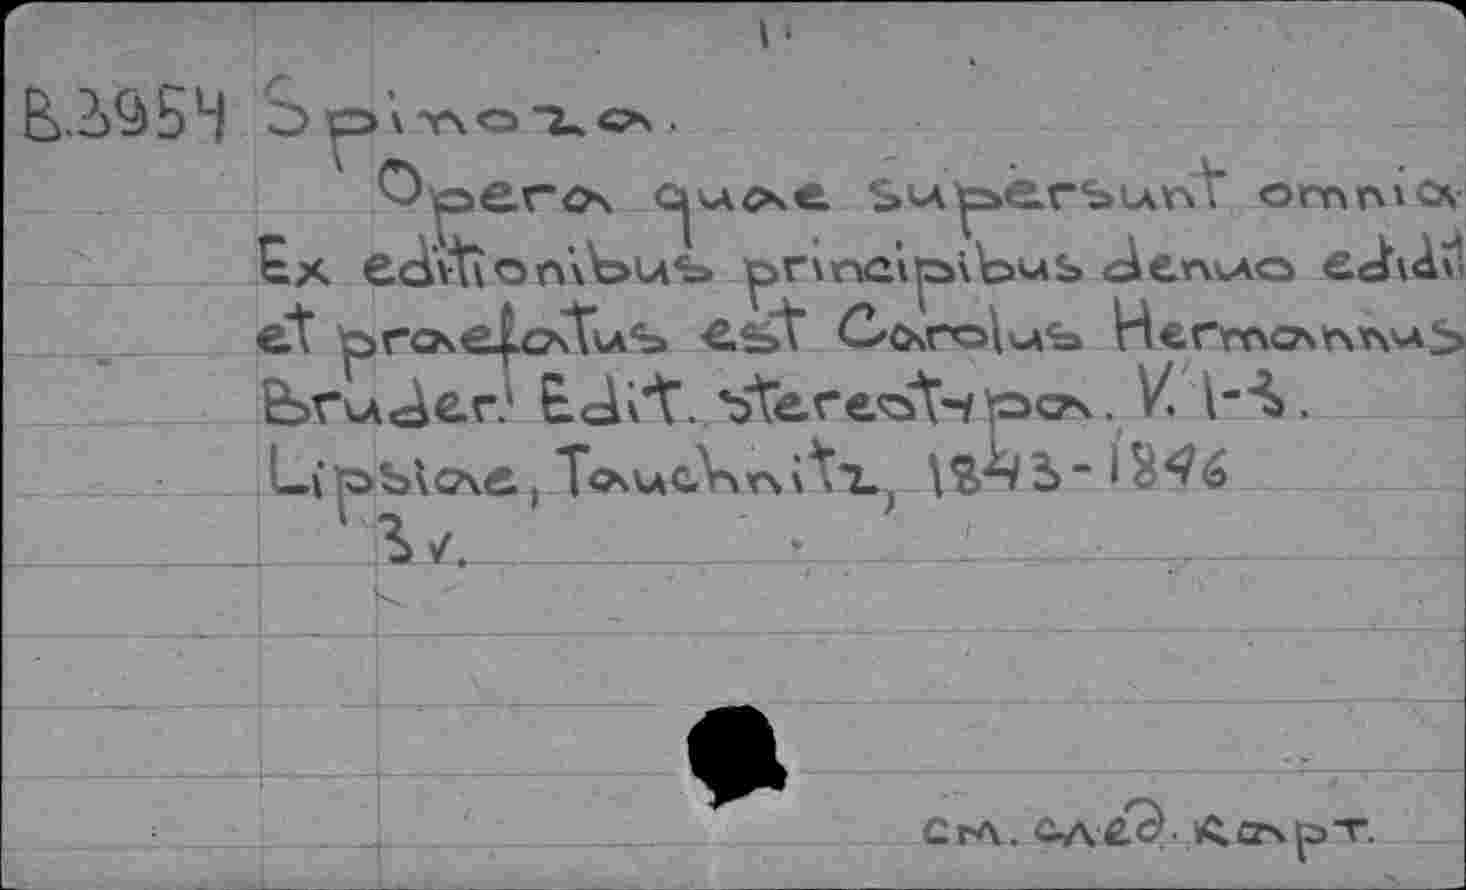 1.
В.3954 Spinoza.
Opera quae supersunt omnia
Ex editionibus principibus denuo edidit
et praefatus est Carolus Hermannus
Bruder. Edit. stereotypa. V. 1-3.
Lipsiae, Tauchnitz, 1843-1846
3 v.
См. след. карт.